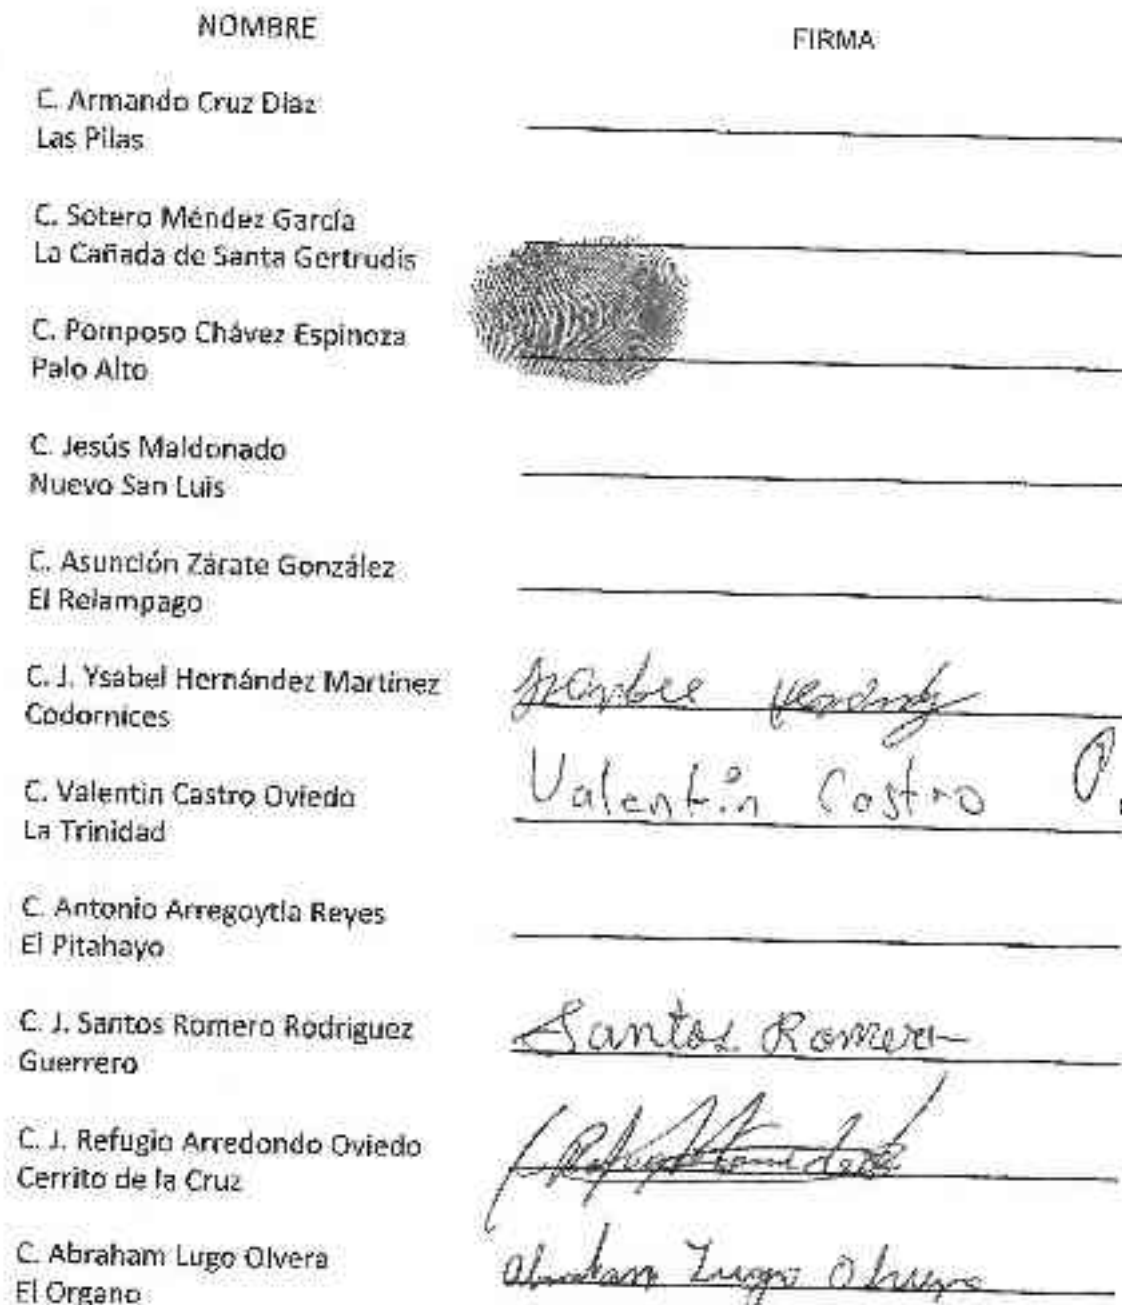 NOMBRE FIRMA
C. Armando Cruz Diaz
Las Pilas
C. Sotero Méndez García
La Cañada de Santa Gertrudis
C. Pomposo Chávez Espinoza
Palo Alto
C. Jesús Maldonado
Nuevo San Luis
C. Asunción Zárate González
El Relampago
C. J. Ysabel Hernández Martínez
Codornices
C. Valentin Castro Oviedo
Valentin Castro
La Trinidad
C. Antonio Arregoytia Reyes
El Pitahayo
C. J. Santos Romero Rodriguez
Santos Romero
Guerrero
C. J. Refugio Arredondo Oviedo
Cerrito de la Cruz
C. Abraham Lugo Olvera
Abraham Lugo Olvera
El Organo